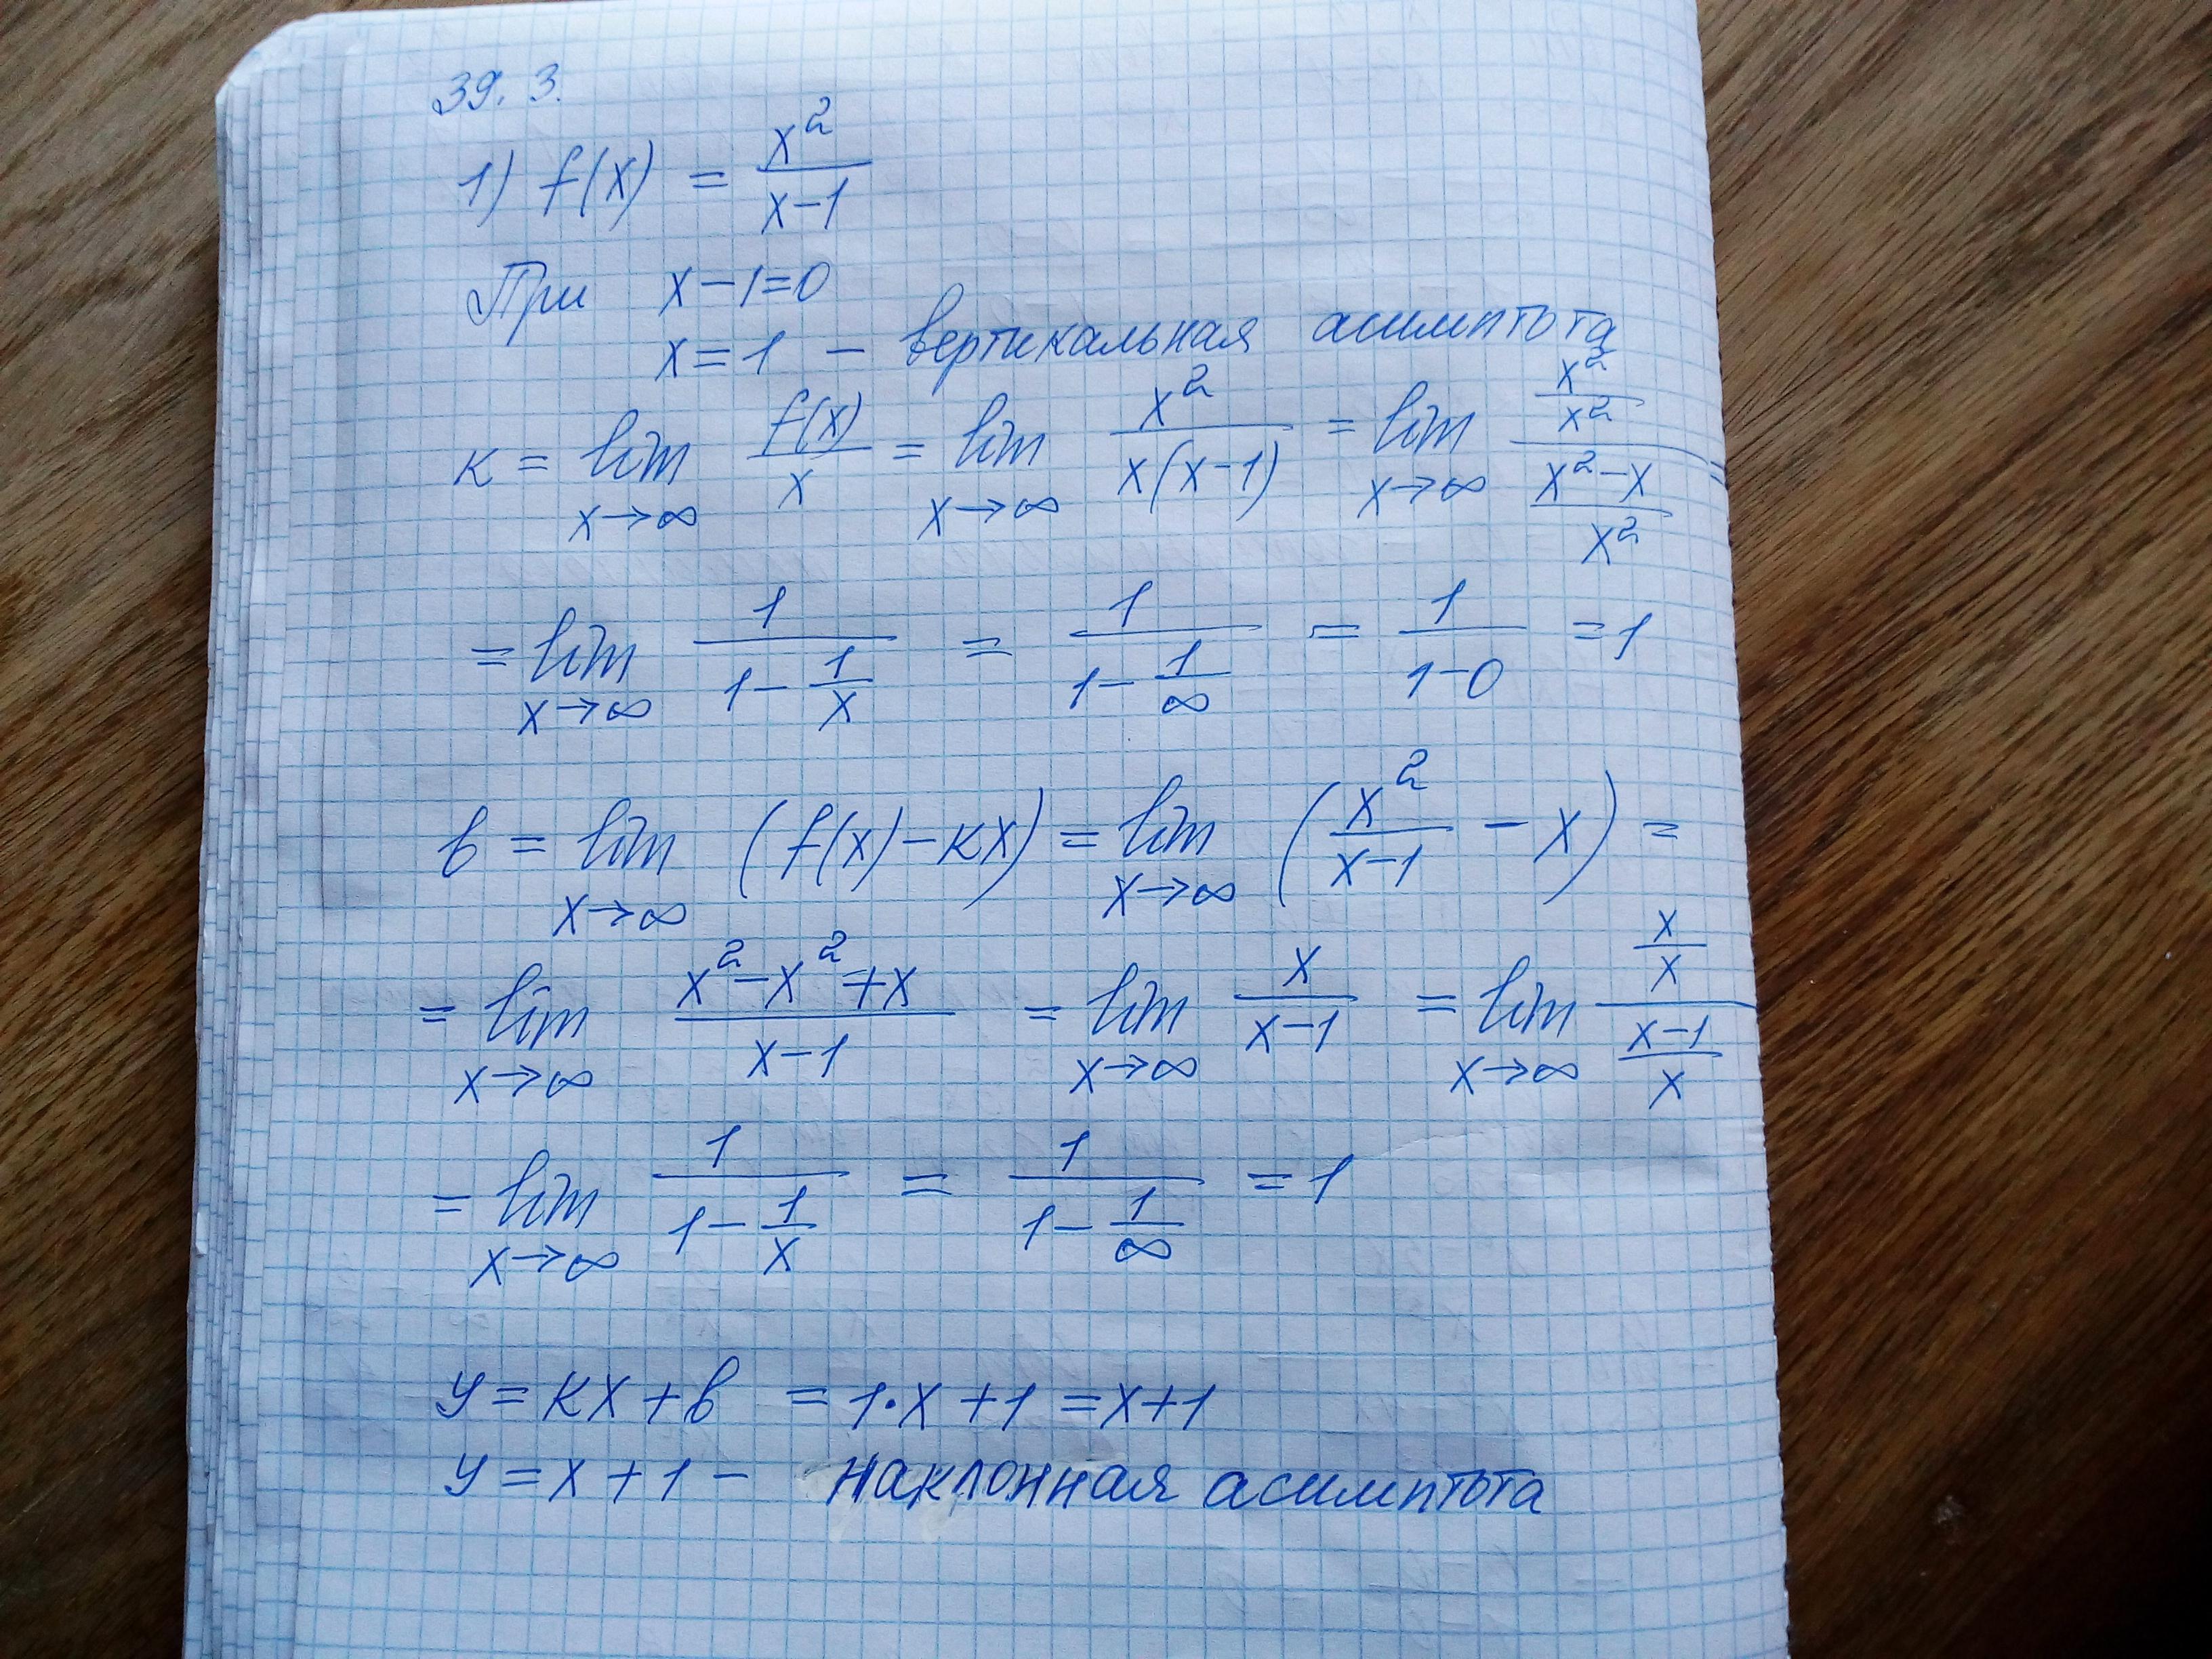 39. 3.
1) f(x) = x²/(x-1)
При x-1=0
x=1 - вертикальная асимптота
к = lim x→∞ f(x)/x = lim x→∞ x²/(x(x-1)) = lim x→∞ (x²/x²)/((x²-x)/x²) =
= lim x→∞ 1/(1-1/x) = 1/(1-1/∞) = 1/(1-0) = 1
в = lim x→∞ (f(x)-кx) = lim x→∞ (x²/(x-1) - x) =
= lim x→∞ (x²-x²+x)/(x-1) = lim x→∞ x/(x-1) = lim x→∞ (x/x)/((x-1)/x)
= lim x→∞ 1/(1-1/x) = 1/(1-1/∞) = 1
y = кx+в = 1·x+1 = x+1
y = x+1 - наклонная асимптота